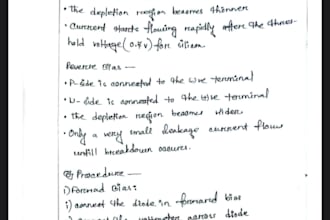 • The depletion region becomes thinner
• Current starts flowing rapidly after the thres-
hold voltage (0.7v) for silicon.
Reverse Bias —
• P-side is connected to the -ve terminal
• N-side is connected to the +ve terminal
• The depletion region becomes wider
• Only a very small leakage current flows
untill breakdown occures.
Procedure —
i) Forward Bias:
i) connect the diode in forward bias
connect the voltmeter across diode